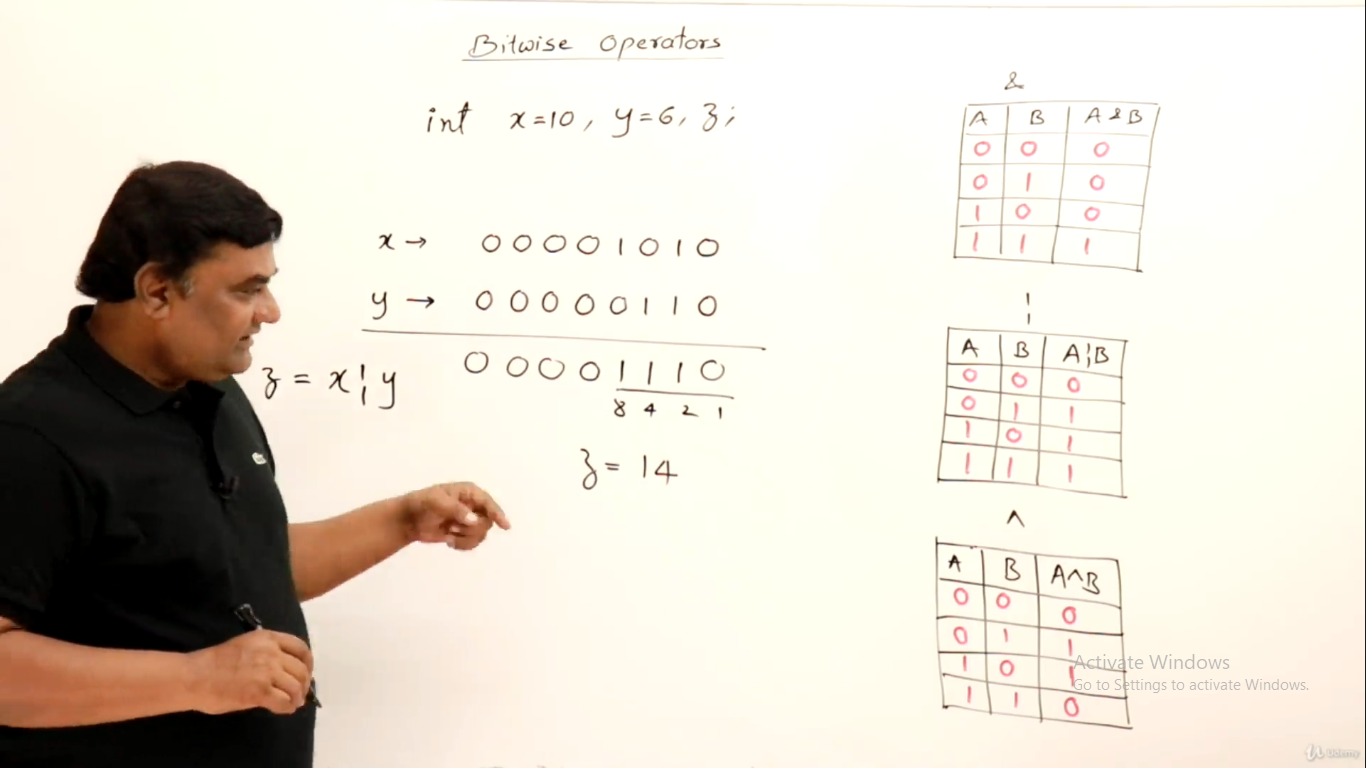 Bitwise Operators
int x=10, y=6, z;
x → 0 0 0 0 1 0 1 0
y → 0 0 0 0 0 1 1 0
0 0 0 0 1 1 1 0
z = x¦y
8 4 2 1
z = 14
&
A B A & B
0 0 0
0 1 0
1 0 0
1 1 1
¦
A B A¦B
0 0 0
0 1 1
1 0 1
1 1 1
^
A B A^B
0 0 0
0 1 1
1 0 1
1 1 0
Activate Windows
Go to Settings to activate Windows.
Udemy